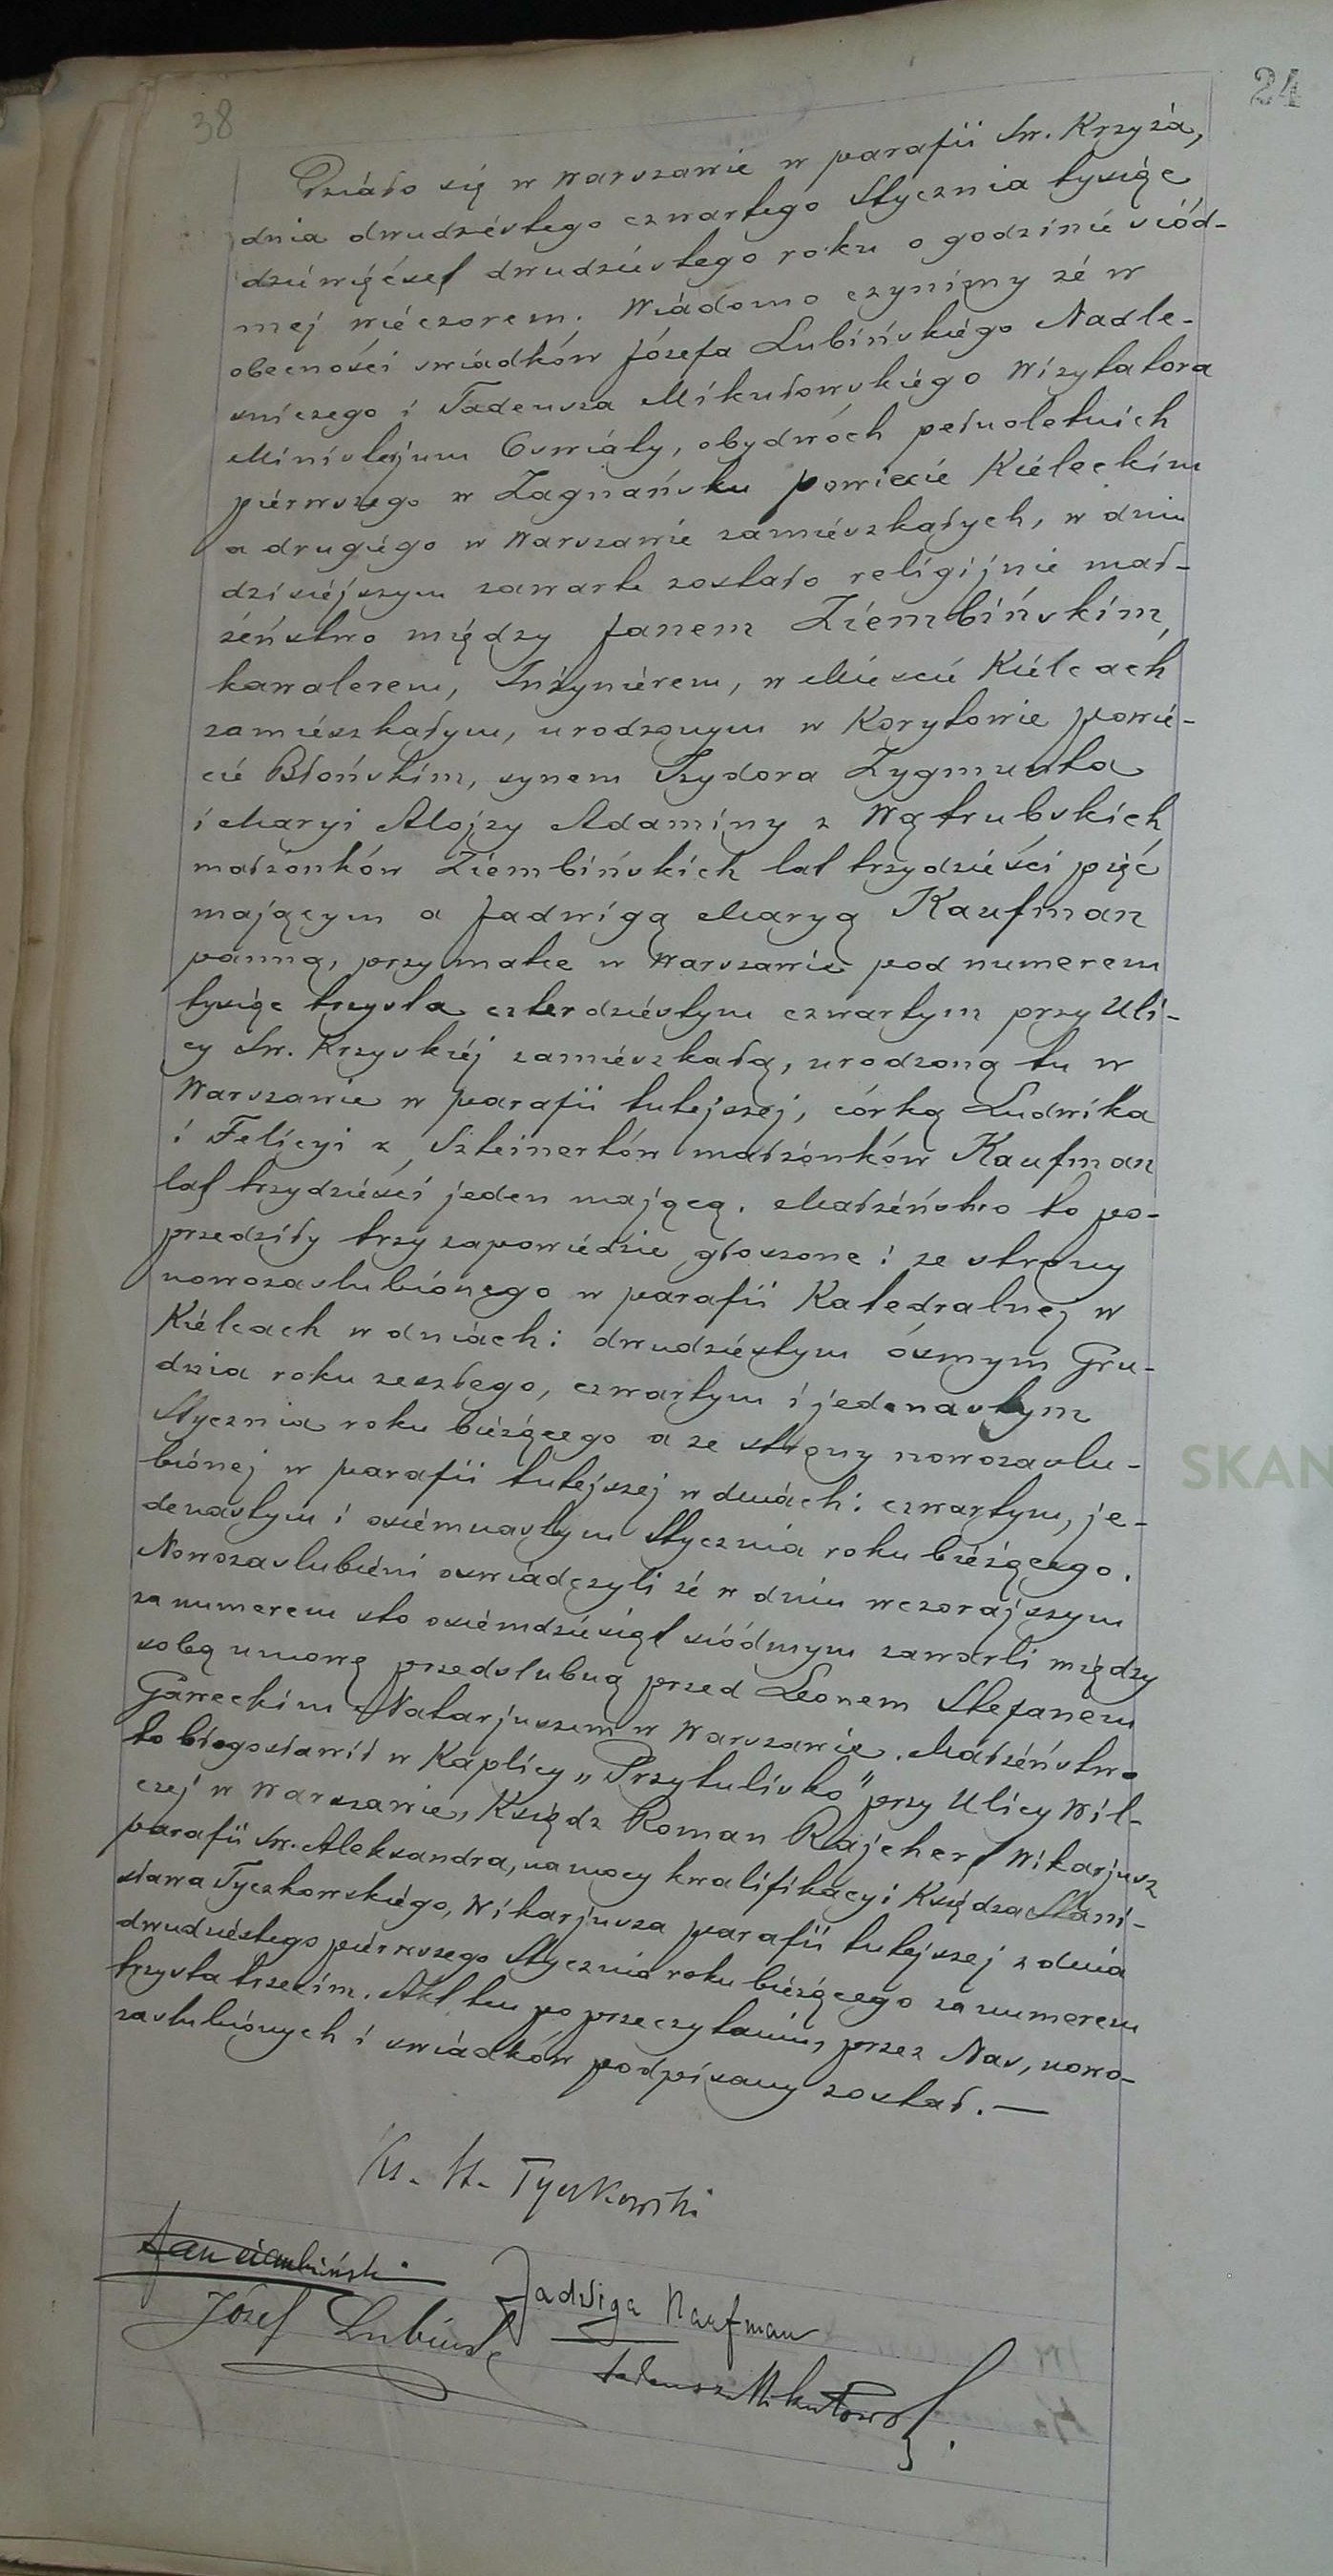 24
38
Działo się w Warszawie w parafii Św. Krzyża,
dnia dwudziestego czwartego Stycznia tysiąc
dziewięćset dwudziestego roku o godzinie siód-
mej wieczorem. Wiadomo czynimy że w
obecności świadków Józefa Lubińskiego Nadle-
śniczego i Tadeusza Mikułowskiego Wizytatora
Ministerjum Oświaty, obydwóch pełnoletnich
pierwszego w Zagnańsku powiecie Kieleckim
a drugiego w Warszawie zamieszkałych, w dniu
dzisiejszym zawarte zostało religijnie mał-
żeństwo między Janem Ziembińskim,
kawalerem, Inżynierem, w Mieście Kielcach
zamieszkałym, urodzonym w Korytowie powie-
cie Błońskim, synem Izydora Zygmunta
i Maryi Alojzy Adaminy z Wątrubskich
małżonków Ziembińskich lat trzydzieści pięć
mającym a Jadwigą Maryą Kaufman
panną, przy matce w Warszawie pod numerem
tysiąc trzysta czterdziestym czwartym przy Uli-
cy Św. Krzyskiej zamieszkałą, urodzoną tu w
Warszawie w parafii tutejszej, córką Ludwika
i Felicyi z Szteinertów małżonków Kaufman
lat trzydzieści jeden mającą. Małżeństwo to po-
przedziły trzy zapowiedzie głoszone: ze strony
nowozaślubionego w parafii Katedralnej w
Kielcach w dniach: dwudziestym ósmym Gru-
dnia roku zeszłego, czwartym i jedenastym
Stycznia roku bieżącego a ze strony nowozaślu-
bionej w parafii tutejszej w dniach: czwartym, je-
denastym i osiemnastym Stycznia roku bieżącego.
Nowozaślubieni oświadczyli że w dniu wczorajszym
za numerem sto osiemdziesiąt siódmym zawarli między
sobą umowę przedślubną przed Leonem Stefanem
Gaweckim Notarjuszem w Warszawie. Małżeństwo
to błogosławił w Kaplicy „Przytulisko" przy Ulicy Wil-
czej w Warszawie, Ksiądz Roman Rajchert Wikarjusz
parafii Św. Aleksandra, na mocy kwalifikacyi Księdza Stani-
sława Tyczkowskiego, Wikarjusza parafii tutejszej z dnia
dwudziestego pierwszego Stycznia roku bieżącego za numerem
trzysta trzecim. Akt ten po przeczytaniu, przez Nas, nowo-
zaślubionych i świadków podpisany został. —
Ks. St. Tyczkowski
Jan Ziembiński
Jadwiga Kaufman
Józef Lubiński
Tadeusz Mikułowski
SKAN